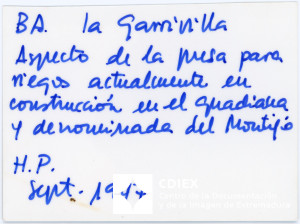 BA. la Garrivilla
Aspecto de la presa para
riegos actualmente en
construcción en el guadiana
y denominada del Montijo
H.P.
Sept. 19
CDIEX